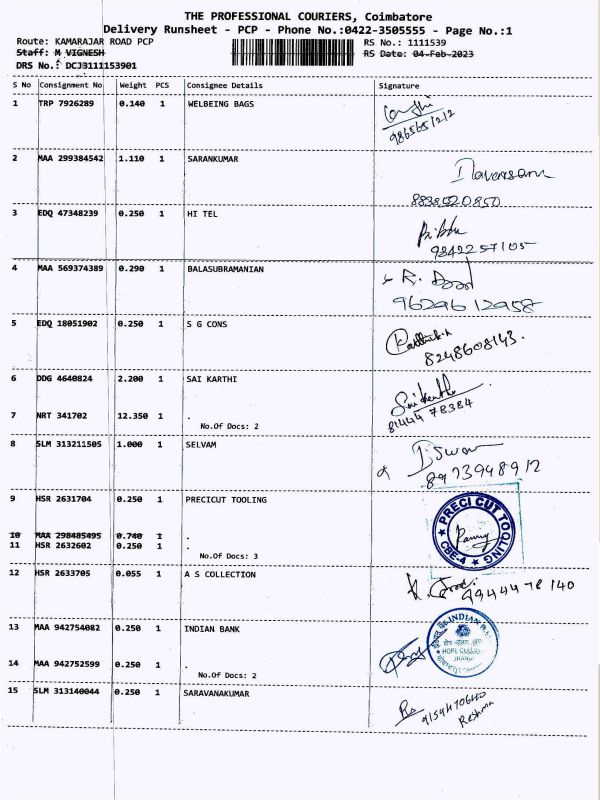 THE PROFESSIONAL COURIERS, Coimbatore
Delivery Runsheet - PCP - Phone No.:0422-3505555 - Page No.:1
Route: KAMARAJAR ROAD PCP RS No.: 1111539
Staff: M VIGNESH RS Date: 04-Feb-2023
DRS No.: DCJB111153901
S No Consignment No Weight PCS Consignee Details Signature
1 TRP 7926289 0.140 1 WELBEING BAGS
9865651212
2 MAA 299384542 1.110 1 SARANKUMAR
8838520850
3 EDQ 47348239 0.250 1 HI TEL
9842257105
4 MAA 569374389 0.290 1 BALASUBRAMANIAN
9629612958
5 EDQ 18051902 0.250 1 S G CONS
8248608143.
6 DDG 4640824 2.200 1 SAI KARTHI
81444 78384
7 NRT 341702 12.350 1 .
No.Of Docs: 2
8 SLM 313211505 1.000 1 SELVAM
8973948912
9 HSR 2631704 0.250 1 PRECICUT TOOLING
PRECI CUT TOOLING
CBE-4
10 MAA 298485495 0.740 1 .
11 HSR 2632602 0.250 1 .
No.Of Docs: 3
12 HSR 2633705 0.055 1 A S COLLECTION
99444 78 140
13 MAA 942754082 0.250 1 INDIAN BANK
INDIAN
14 MAA 942752599 0.250 1 .
No.Of Docs: 2
15 SLM 313140044 0.250 1 SARAVANAKUMAR
Reshma